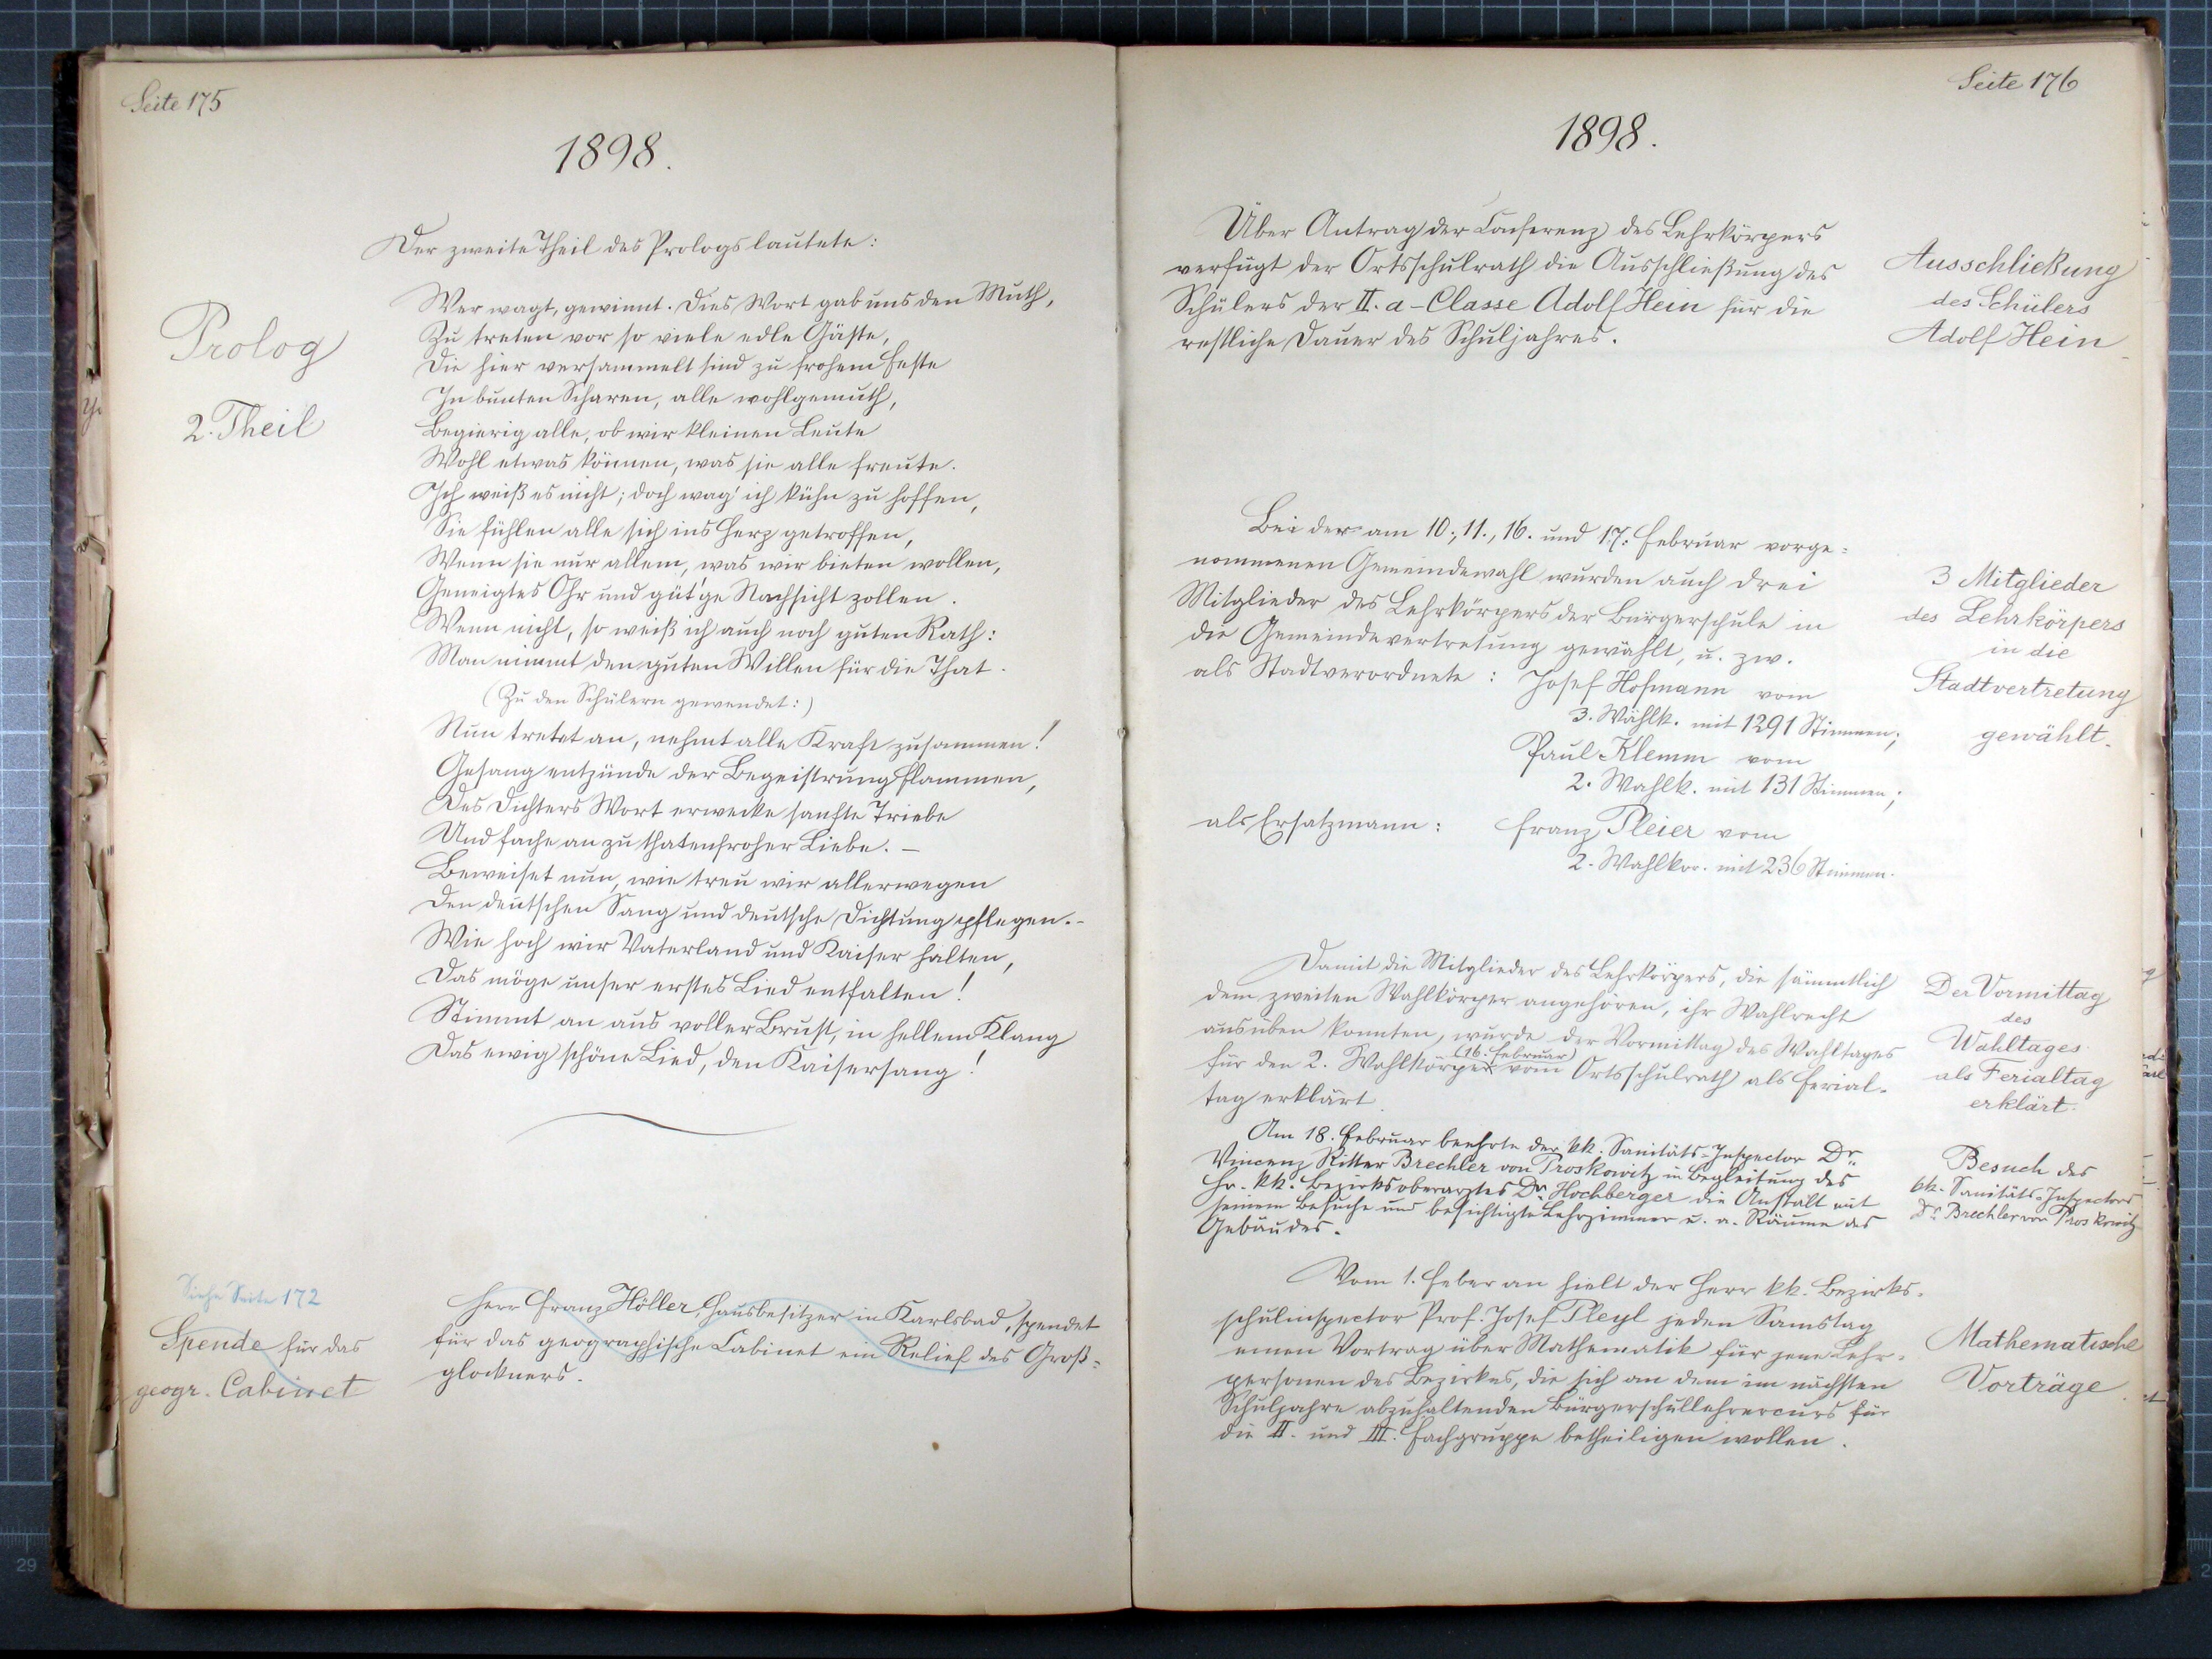 Seite 175
1898.
Der zweite Theil des Prologs lautete:
Prolog
2. Theil
Wer wagt, gewinnt. Dies Wort gab uns den Muth,
Zu treten vor so viele edle Gäste,
Die hier versammelt sind zu frohem Feste
In bunten Scharen, alle wohlgemuth,
Begierig alle, ob wir kleinen Leute
Wohl etwas können, was sie alle freute.
Ich weiß es nicht; doch wag' ich kühn zu hoffen,
Sie fühlen alle sich ins Herz getroffen,
Wenn sie nur allem, was wir bieten wollen,
Geneigtes Ohr und güt'ge Nachsicht zollen.
Wenn nicht, so weiß ich auch noch guten Rath:
Man nimmt den guten Willen für die That.
(Zu den Schülern gewendet:)
Nun tretet an, nehmt alle Kraft zusammen!
Gesang entzünde der Begeistrung Flammen,
Des Dichters Wort erwecke sanfte Triebe
Und fache an zu thatenfroher Liebe. –
Beweiset nun, wie treu wir allerwegen
Den deutschen Sang und deutsche Dichtung pflegen. –
Wie hoch wir Vaterland und Kaiser halten,
Das möge unser erstes Lied entfalten!
Stimmt an aus voller Brust, in hellem Klang
Das ewig schöne Lied, den Kaisersang!
Siehe Seite 172
Spende für das
geogr. Cabinet
Herr Franz Höller, Hausbesitzer in Karlsbad, spendet
für das geographische Cabinet ein Relief des Groß=
glockners.
Seite 176
1898.
Über Antrag der Conferenz des Lehrkörpers
verfügt der Ortsschulrath die Ausschließung des
Schülers der II. a-Classe Adolf Hein für die
restliche Dauer des Schuljahres.
Ausschließung
des Schülers
Adolf Hein
Bei der am 10., 11., 16. und 17. Februar vorge=
nommenen Gemeindewahl wurden auch drei
Mitglieder des Lehrkörpers der Bürgerschule in
die Gemeindevertretung gewählt, u. zw.
als Stadtverordnete: Josef Hofmann vom
3. Wahlk. mit 1291 Stimmen;
Paul Klemm vom
2. Wahlk. mit 131 Stimmen;
als Ersatzmann: Franz Pleier vom
2. Wahlkor. mit 236 Stimmen.
3 Mitglieder
des Lehrkörpers
in die
Stadtvertretung
gewählt.
Damit die Mitglieder des Lehrkörpers, die sämmtlich
dem zweiten Wahlkörper angehören, ihr Wahlrecht
ausüben konnten, wurde der Vormittag des Wahltages
(16. Februar)
für den 2. Wahlkörper vom Ortsschulrath als Ferial-
tag erklärt.
Der Vormittag
des
Wahltages
als Ferialtag
erklärt.
Am 18. Februar beehrte der kk. Sanitäts=Inspector Dr.
Vincenz Ritter Brechler von Troskowitz in Begleitung des
Hr. kk. Bezirksoberarztes Dr. Hochberger die Anstalt mit
seinem Besuche und besichtigte Lehrzimmer u. a. Räume des
Gebäudes.
Besuch des
kk. Sanitäts=Inspectors
Dr. Brechler von Troskowitz
Vom 1. Feber an hielt der Herr kk. Bezirks-
schulinspector Prof. Josef Pleyl jeden Samstag
einen Vortrag über Mathematik für jene Lehr-
personen des Bezirkes, die sich an dem im nächsten
Schuljahre abzuhaltenden Bürgerschullehrercurs für
die II. und III. Fachgruppe betheiligen wollen.
Mathematische
Vorträge